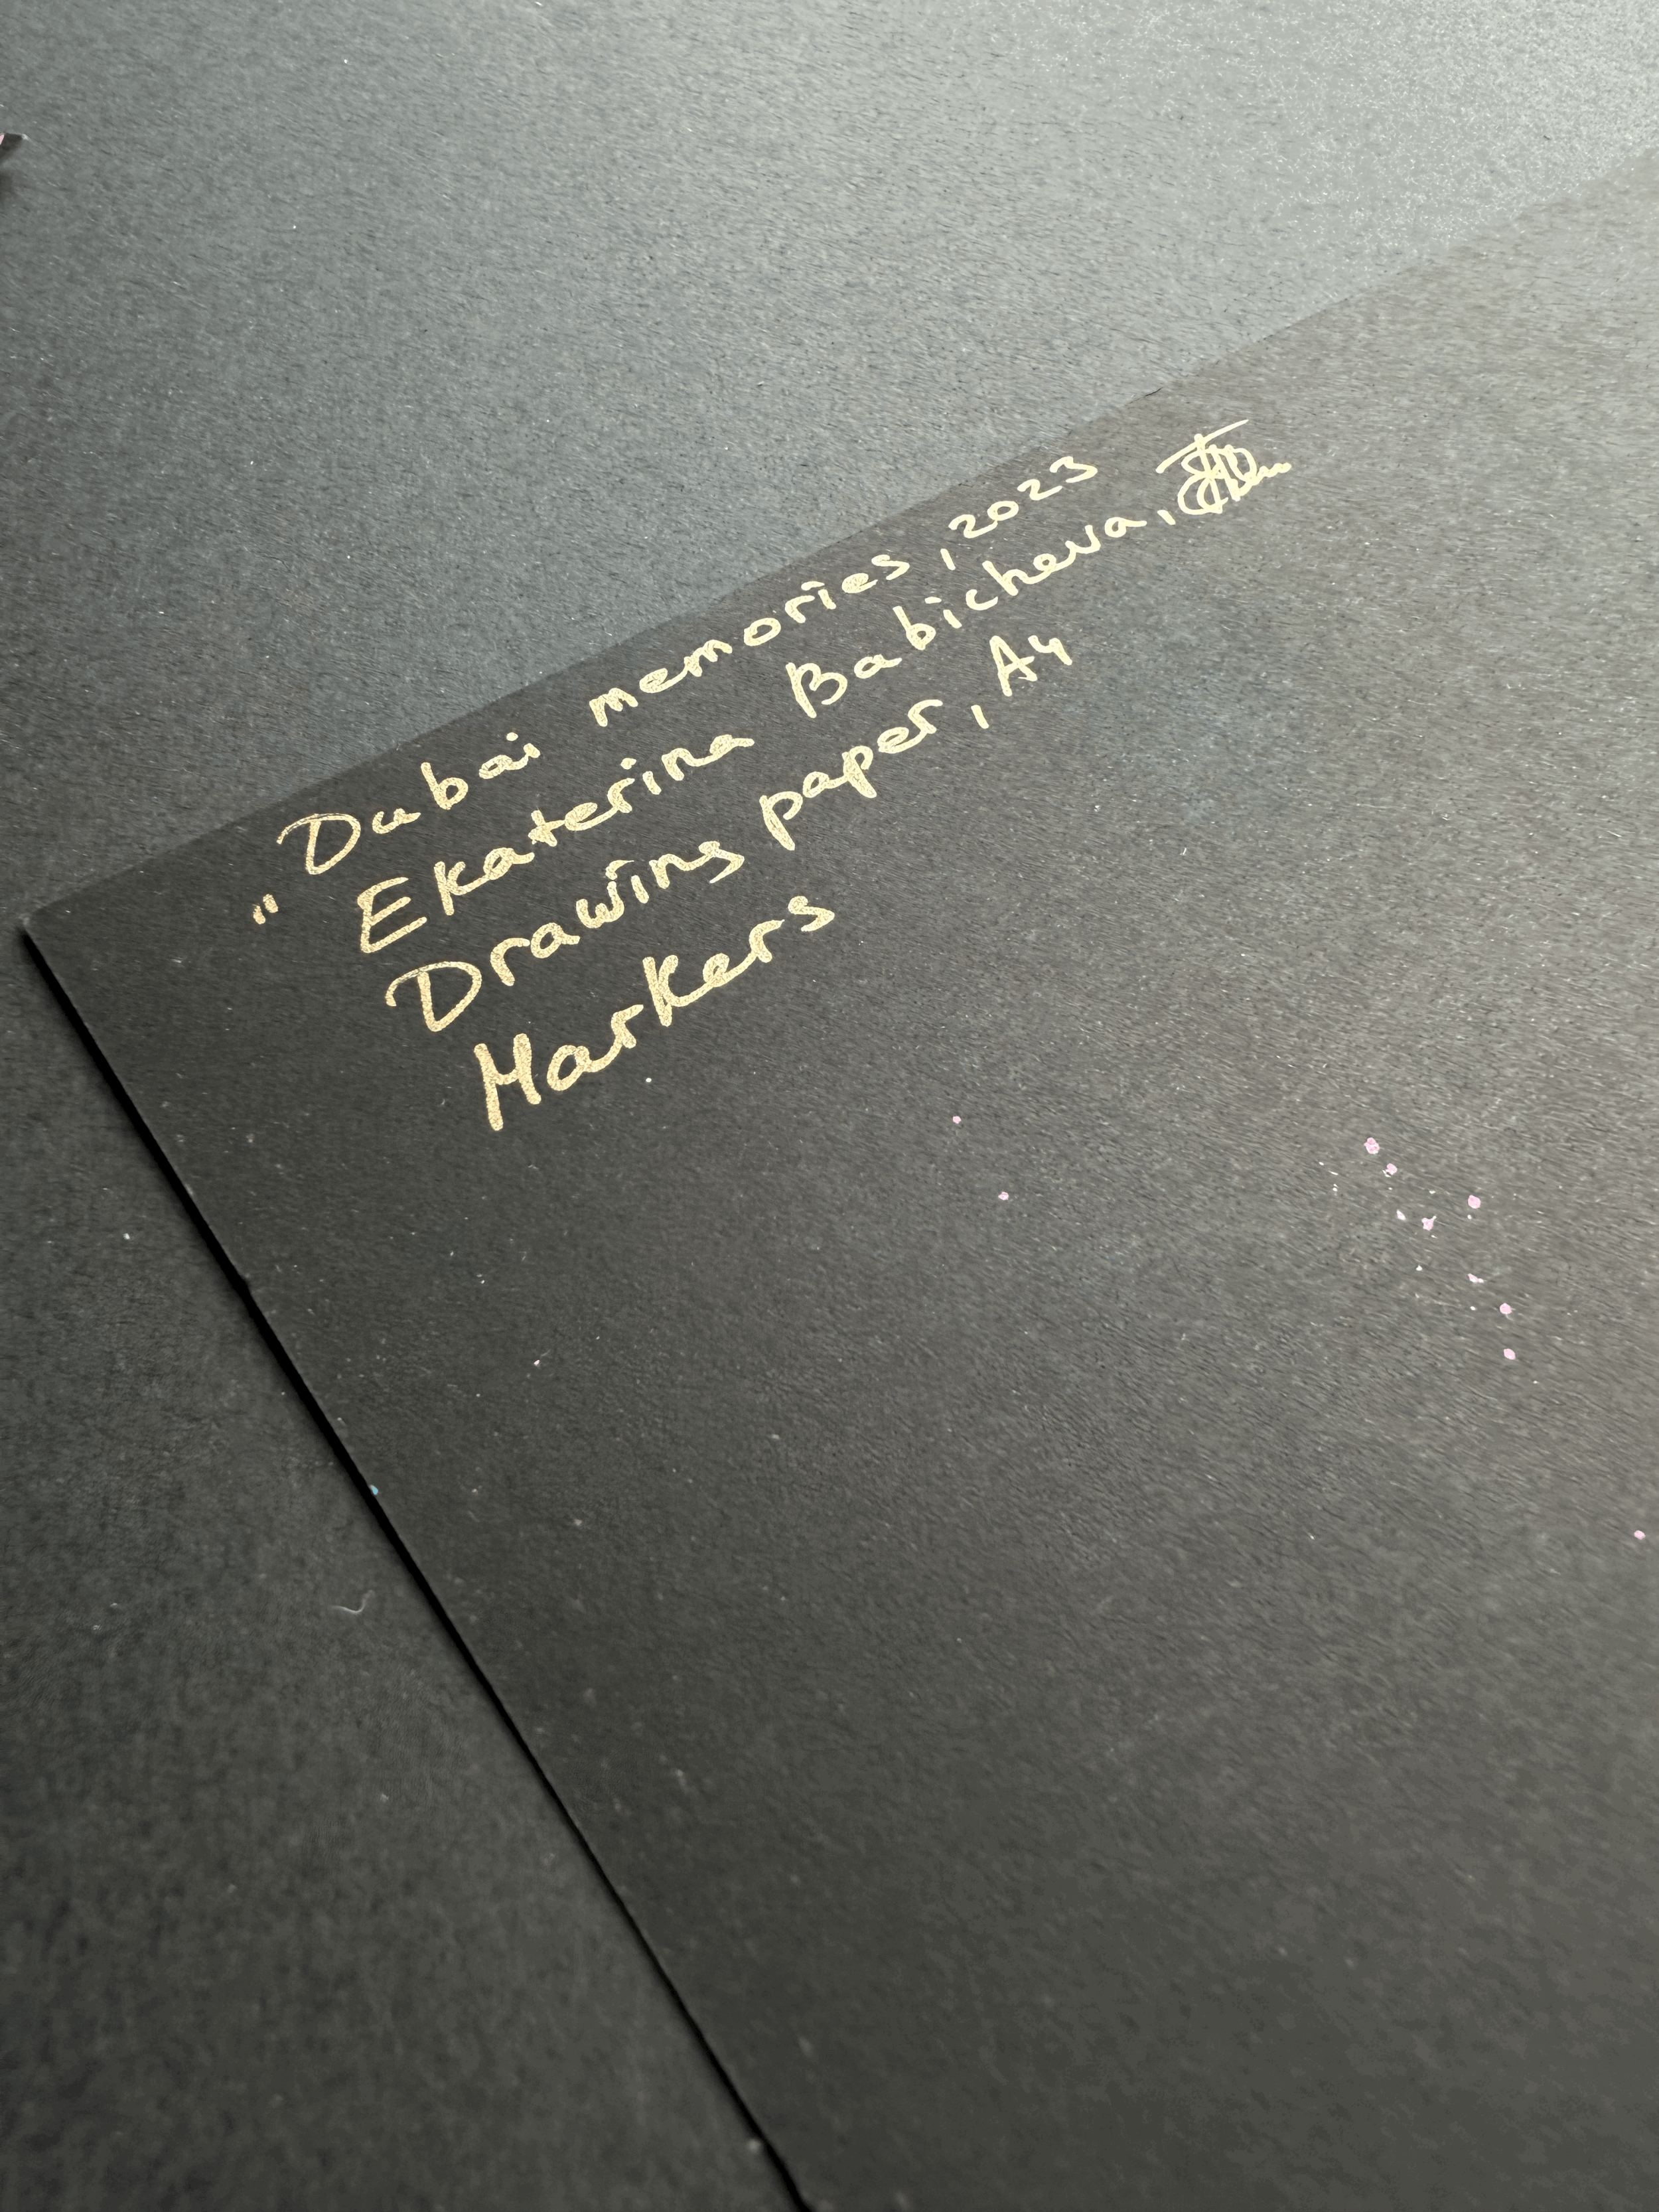 "Dubai memories, 2023
Ekaterina Babicheva,
Drawing paper, A4
Markers